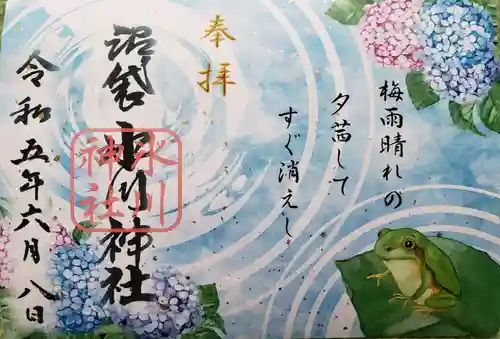 梅雨晴れの
夕茜して
すぐ消えし
奉拝
沼袋氷川神社
氷川
神社
令和五年六月八日